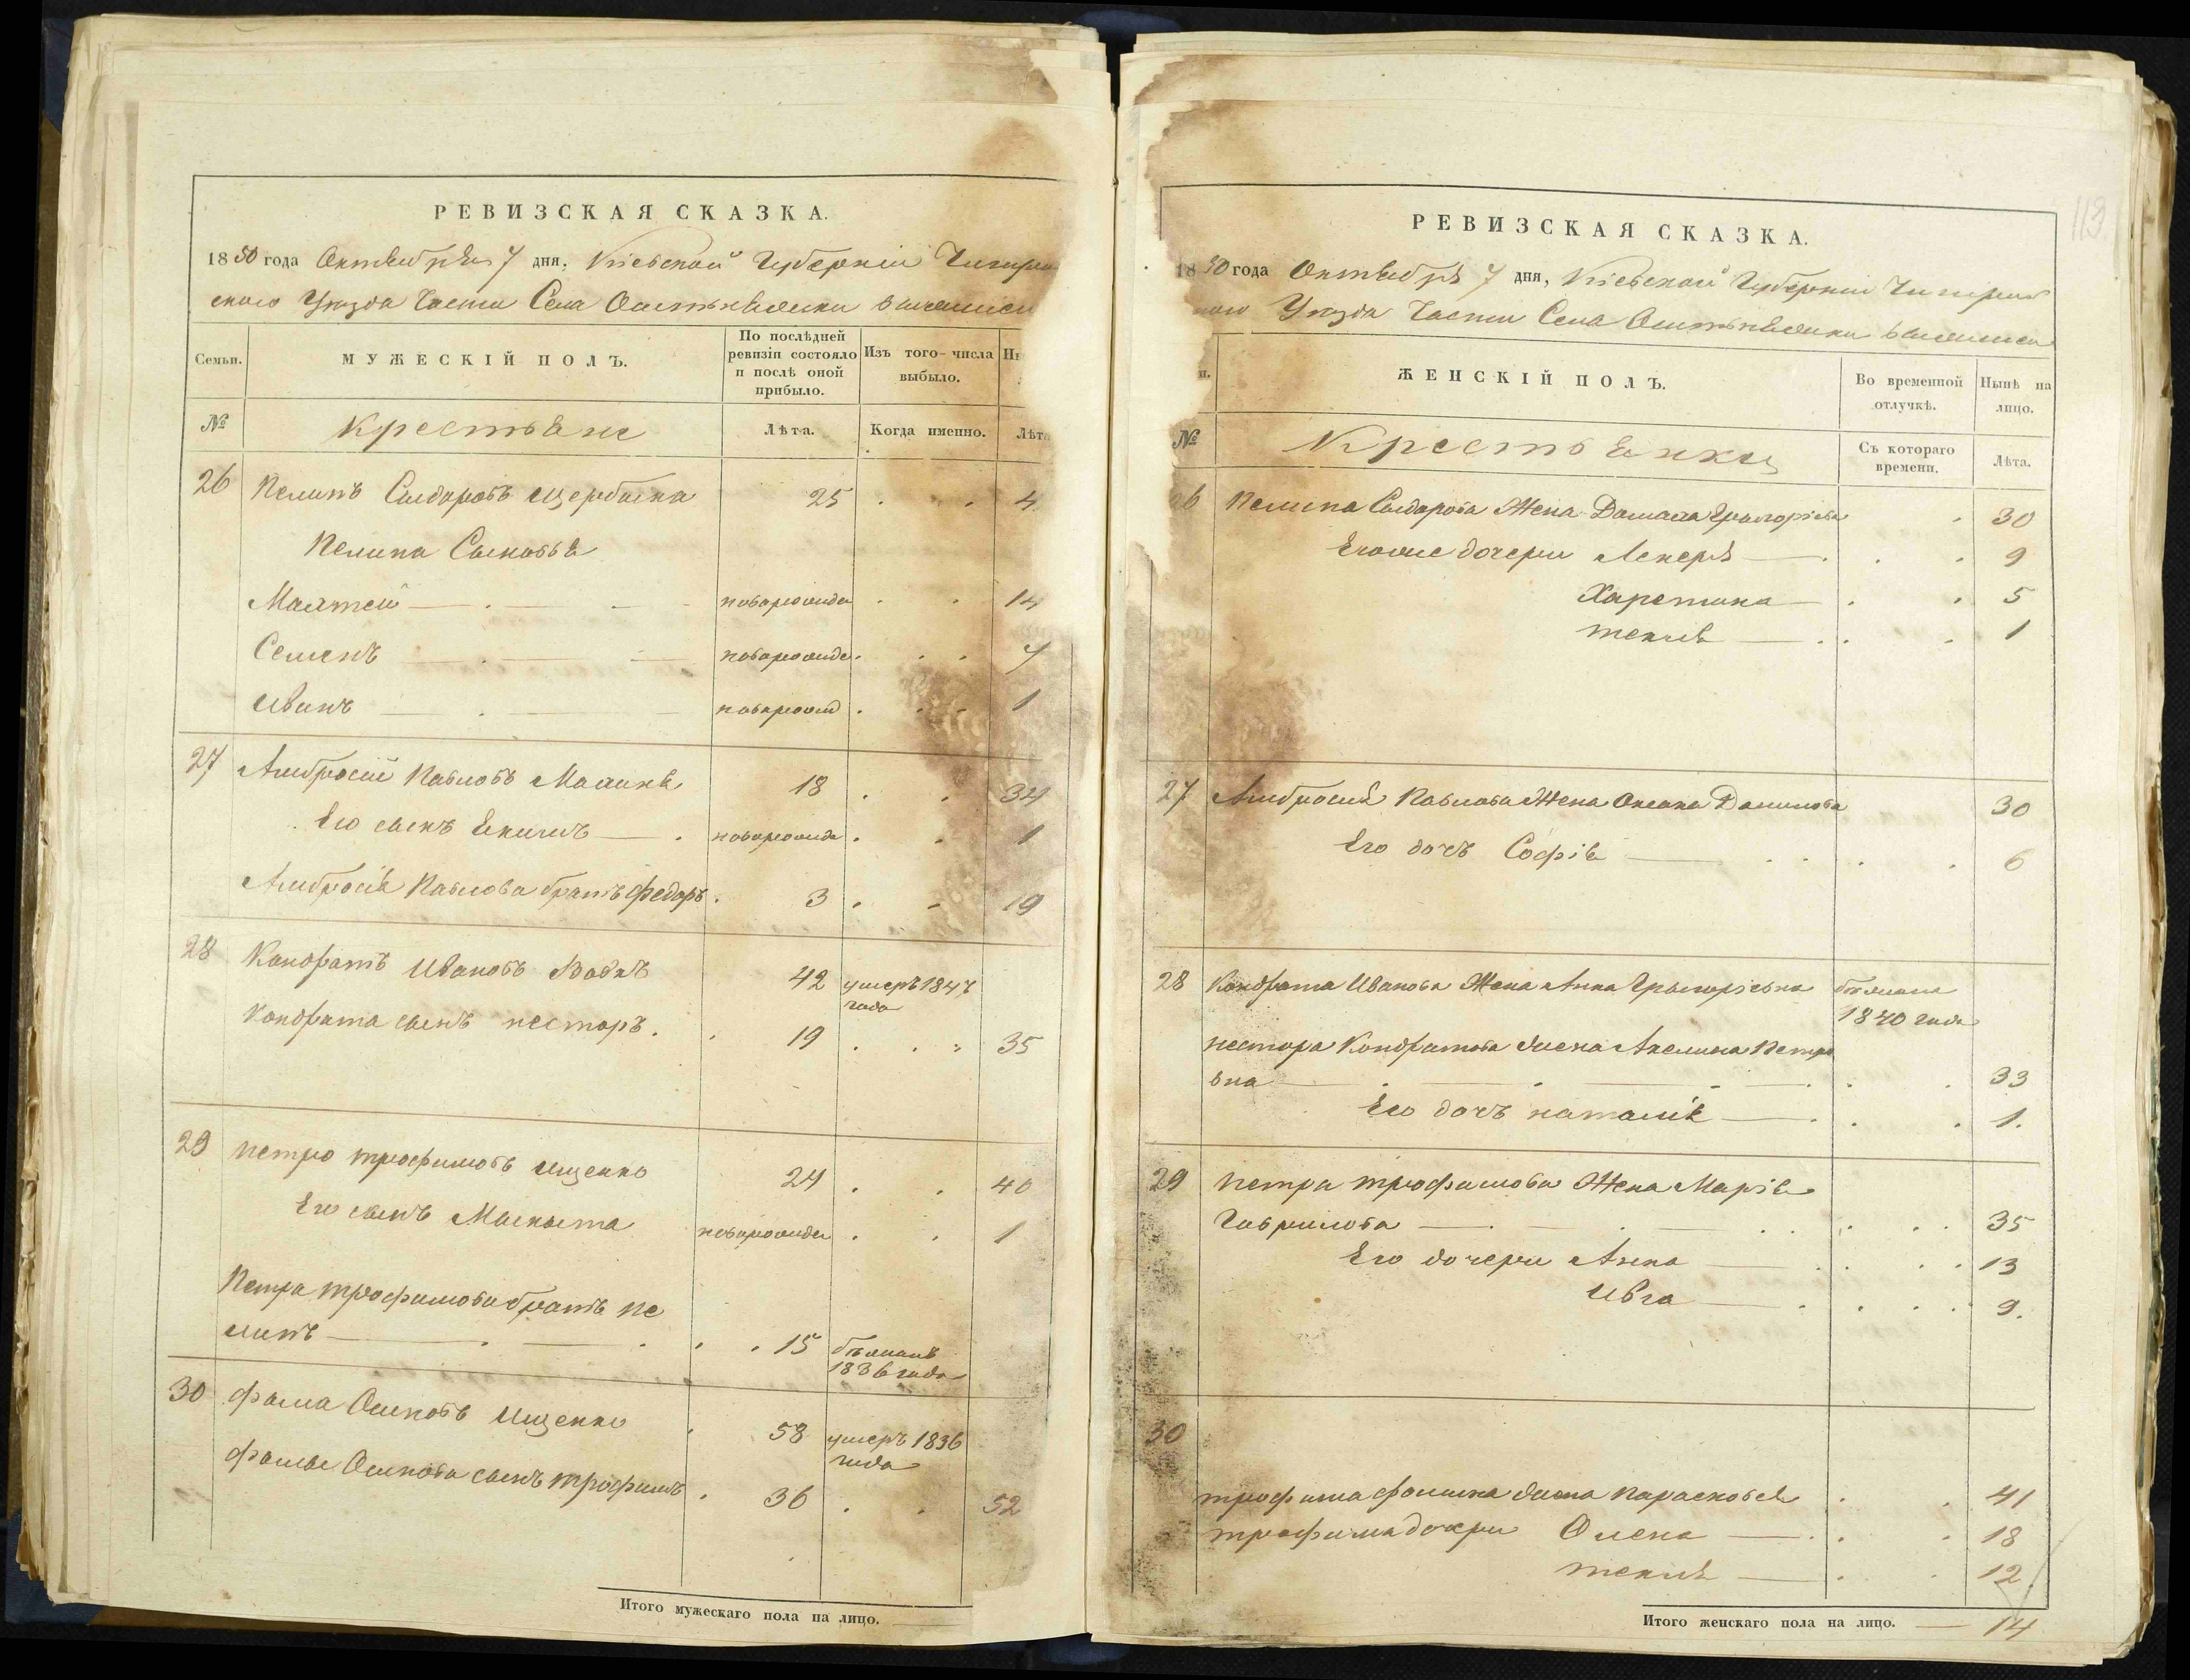 РЕВИЗСКАЯ СКАЗКА.
1850 года Октября 7 дня, Кіевской Губерніи Чигирин
ского Уезда Части Села
Семьи.
МУЖЕСКІЙ ПОЛЪ.
По послѣдней ревизіи состояло и послѣ оной прибыло.
Изъ того-числа выбыло.
№
Крестьяне
Лѣта.
Когда именно.
Лѣта
26 Пелипъ Сыдоровъ Щербына 25 4
Пелипа Сыновья
Матвей — новорожден 14
Семенъ — новорожде 7
Иванъ — новорожд 1
27 Амбросій Павловъ 18 34
Его сынъ — новорожде 1
Амбросія Павлова братъ Федоръ 3 19
28 Кондратъ Ивановъ 42 умеръ 1847
года
Кондрата сынъ Несторъ. 19 35
29 Петро Трофимовъ Ищенко 24 40
Его сынъ Мыкыта новорожден 1
Петра Трофимова братъ Пе
липъ — 15 бежалъ
1836 года
30 Фома Осиповъ Ищенко 58 умеръ 1836
года
Фомы Осипова сынъ Трофимъ 36 52
Итого мужескаго пола на лицо.
113
РЕВИЗСКАЯ СКАЗКА.
1850 года Октября 7 дня, Кіевской Губерніи Чигирин
ского Уезда Части Села
ЖЕНСКІЙ ПОЛЪ.
Во временной отлучкѣ.
Нынѣ на лицо.
№
Крестьянки
Съ котораго времени.
Лѣта.
26 Пелипа Сыдорова Жена Домаха Грыгоріева 30
Еговые дочери Лекеря — 9
Харетина — 5
Текля — 1
27 Амбросія Павлова Жена Оксана Данилова 30
Его дочъ Софія — 6
28 Кондрата Иванова Жена Анна Грыгорівна бежала
1840 года
Нестора Кондратова жена Акелина Петро
вна — 33
Его дочъ Наталія — 1.
29 Петра Трофимова Жена Марія
Гаврилова — 35
Его дочери Анна — 13
Ивга — 9.
30
Трофима Фомина жена Парасковія 41
Трофима дочери Олена — 18
Текля — 12
Итого женскаго пола на лицо. — 14